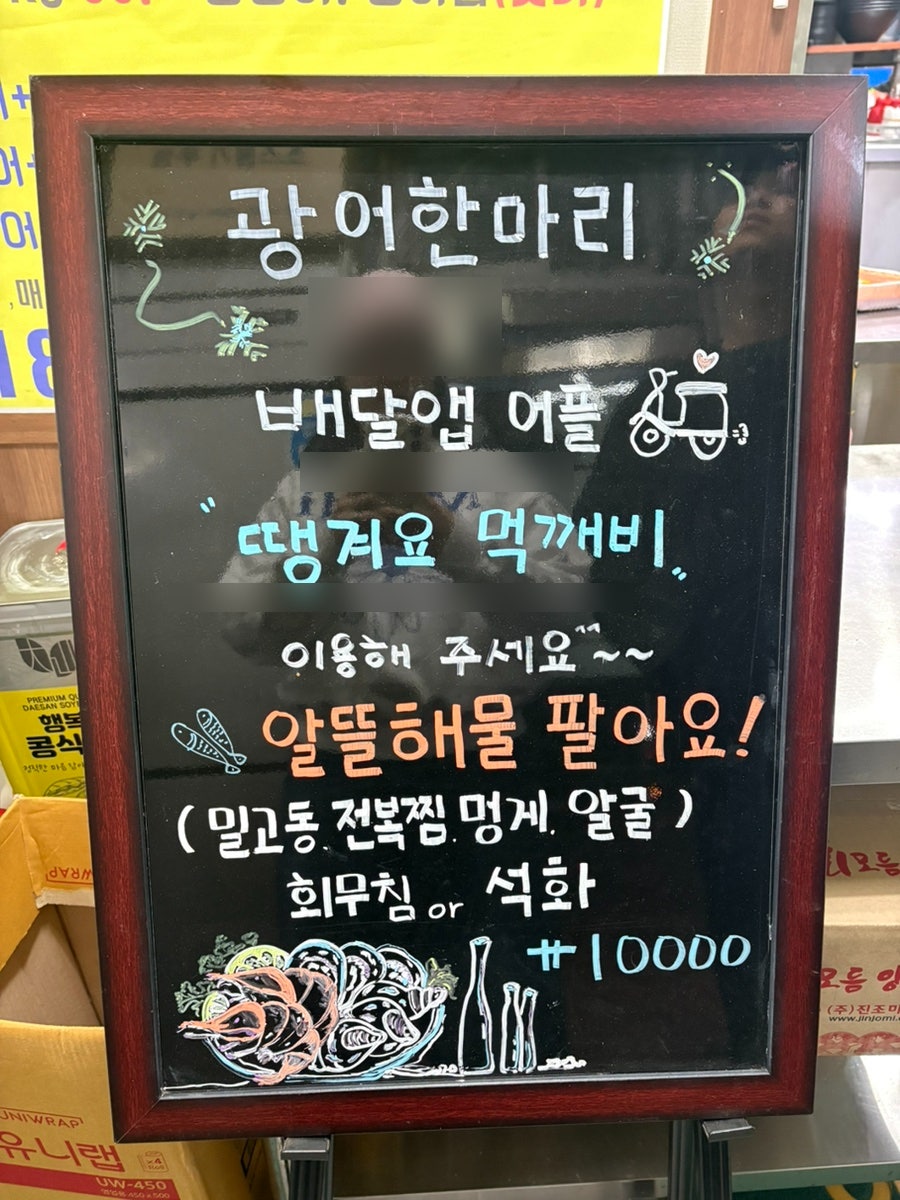 광어한마리
배달앱 어플
"땡겨요 먹깨비"
이용해 주세요^^~~
알뜰해물 팔아요!
(밀고동.전복찜.멍게.알굴)
회무침 or 석화
₩10000
PREMIUM
행복
콩식
UNIWRAP
유니랩
UW-450
모듬
(주)진조미
www.jinjomi.c